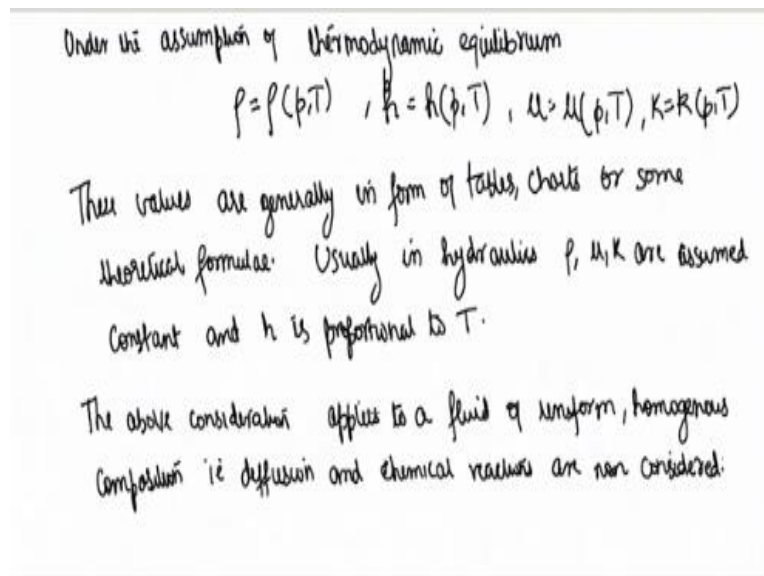 Under the assumption of thermodynamic equilibrium
ρ = ρ(p,T) , h = h(p,T) , μ = μ(p,T) , K = K(p,T)
These values are generally in form of tables, charts or some
theoretical formulae. Usually in hydraulics ρ, μ, K are assumed
constant and h is proportional to T.
The above consideration applies to a fluid of uniform, homogenous
composition ie diffusion and chemical reactions are non considered.